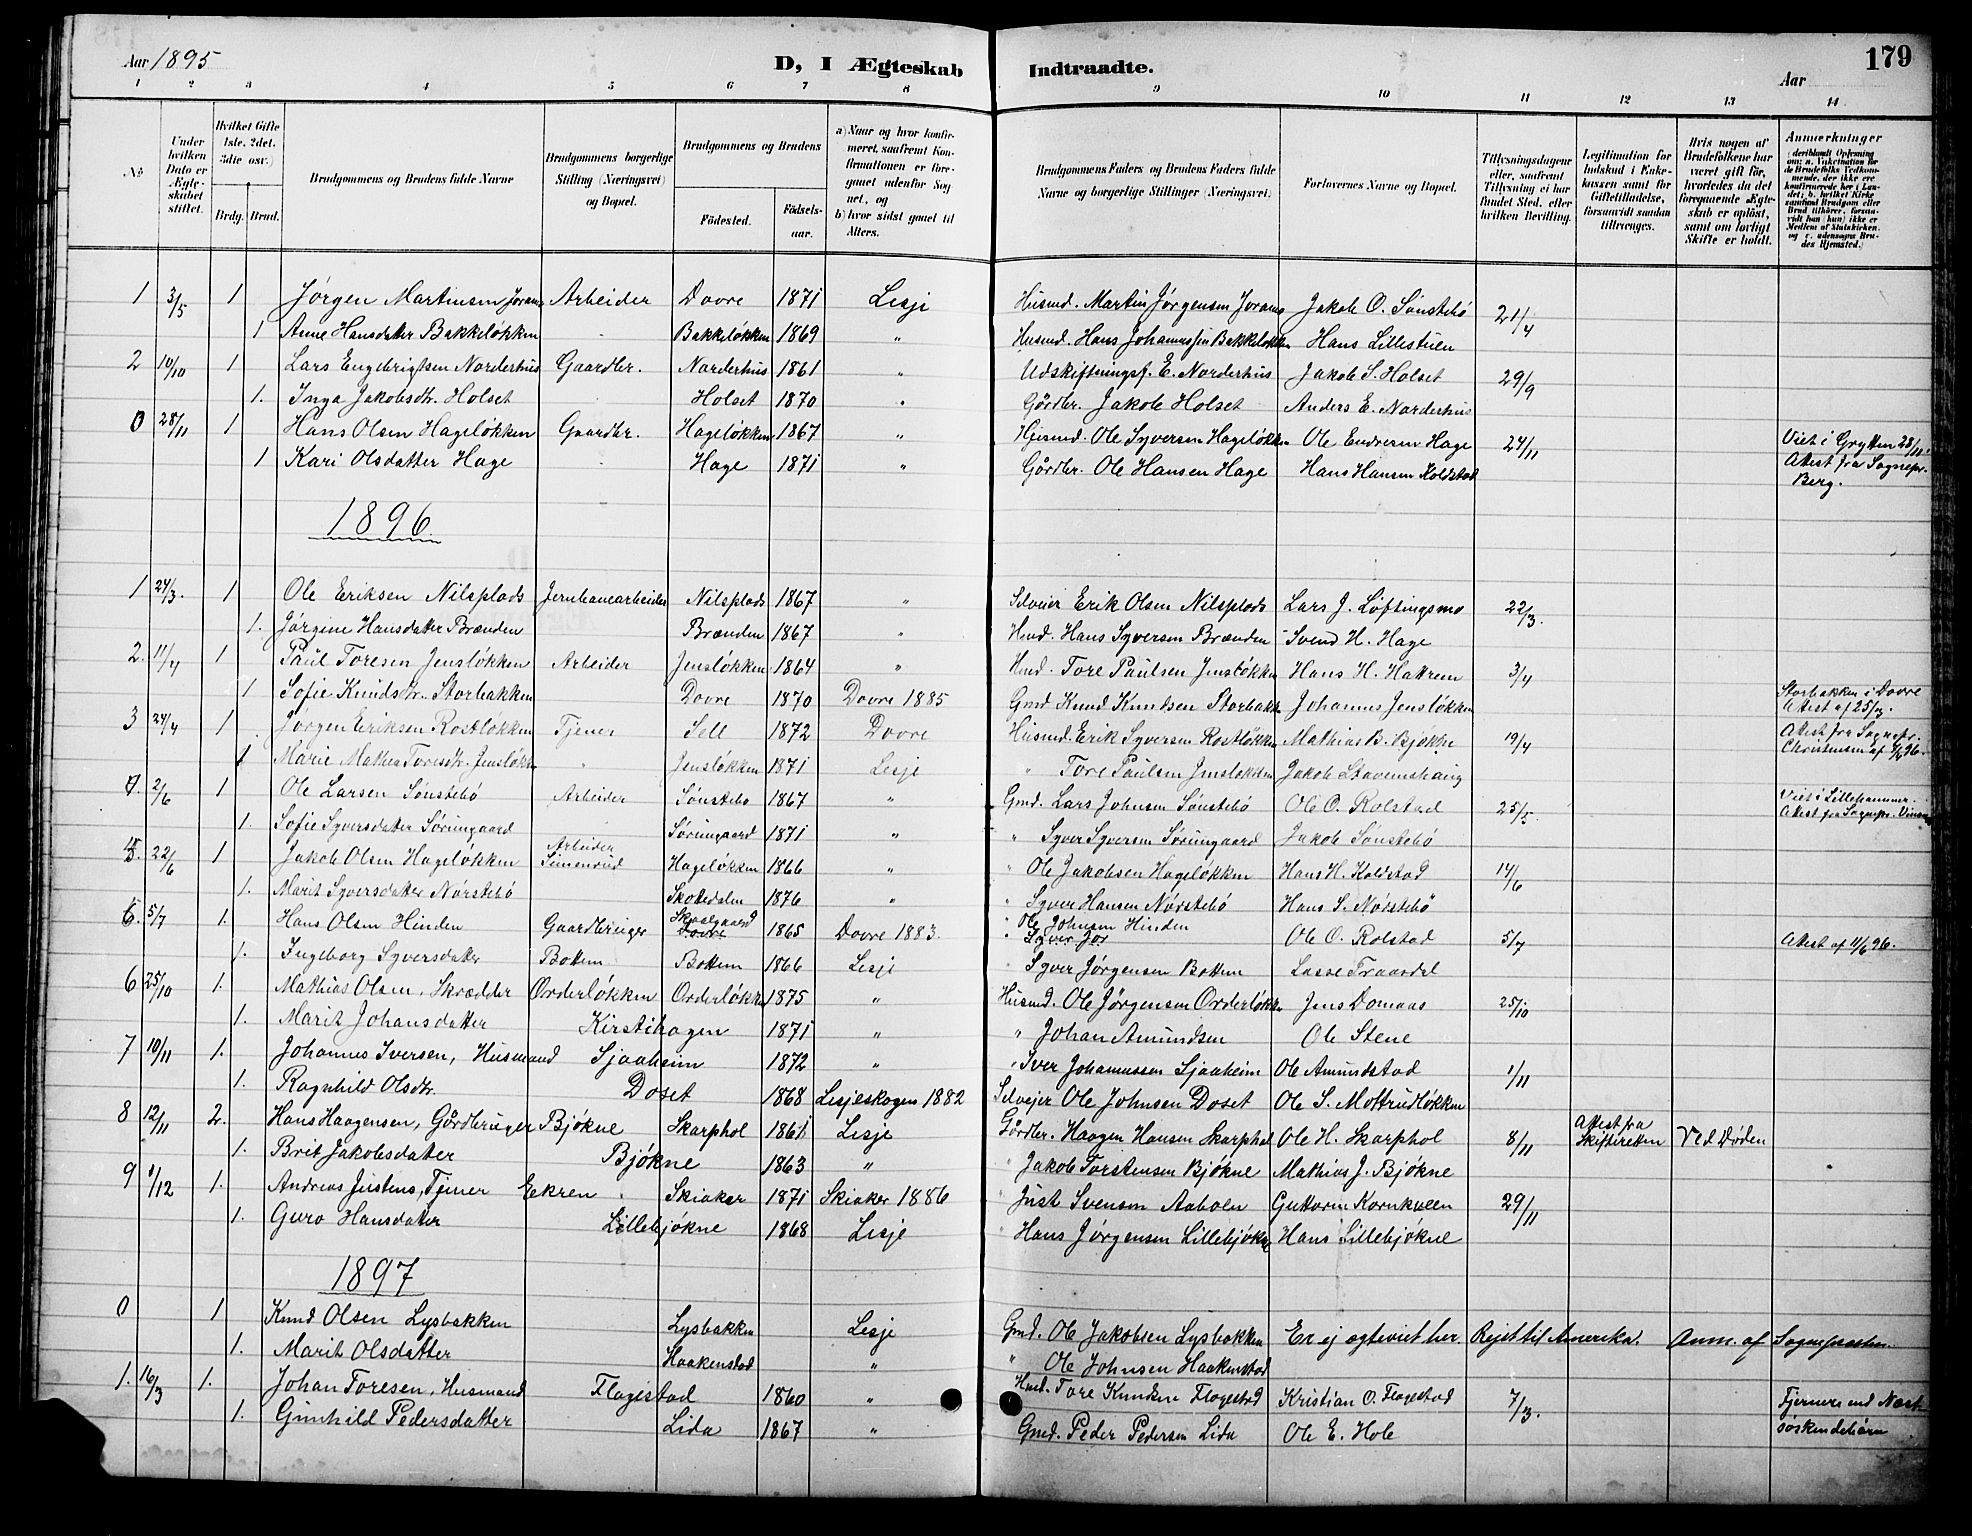 Aar 1895
D, I Ægteskab Indtraadte.
Aar
179
1 2 3 4 5 6 7 8 9 10 11 12 13 14
No
Under hvilken Dato er Ægteskabet stiftet.
Hvilket Gifte 1ste, 2det, 3die osv.)
Brdg. Brud.
Brudgommens og Brudens fulde Navne
Brudgommens borgerlige Stilling (Næringsvei) og Bopæl.
Brudgommens og Brudens
Födested. Födselsaar.
a) Naar og hvor konfirmeret, saafremt Konfirmationen er foregaaet udenfor Sognet, og
b) hvor sidst gaaet til Alters.
Brudgommens Faders og Brudens Faders fulde Navne og borgerlige Stillinger (Næringsvei).
Forlovernes Navne og Bopæl.
Tillysningsdagene eller, saafremt Tillysning ei har fundet Sted, efter hvilken Bevilling.
Legitimation for Indskud i Enkekassen samt for Giftetilladelse, forsaavidt saadan tiltrænges.
Hvis nogen af Brudefolkene har været gift før, hvorledes da det foregaaende Ægteskab er oplöst, samt om lovligt Skifte er holdt.
Anmærkninger
1 3/5 1 Jørgen Martinsen Joramo Arbeider Dovre 1871 Lesje Husmd. Martin Jørgensen Joramo Jakob O. Sønstebø 21/4
1 Anne Hansdatter Bakkeløkken Bakkeløkken 1869 " Husmd. Hans Johannessen Bakkeløkken Hans Lillestuen
2 10/10 1 Lars Engebrigtsen Norderhus Gaardbr. Norderhus 1861 " Udskiftningsf. E. Norderhus Jakob S. Holset 29/9
1. Inga Jakobsdtr. Holset Holset 1870 " Gårdbr. Jakob Holset Anders E. Norderhus
0 28/11 1 Hans Olsen Hageløkken Gaardbr. Hageløkken 1867 " Husmd. Ole Syversen Hageløkken Ole Endresen Hage 24/11 Viet i Grytten 28/11.
1 Kari Olsdatter Hage Hage 1871 " Gårdbr. Ole Hansen Hage Hans Hansen Koldstad Attest fra Sognepr. Berg.
1896
1 24/3. 1 Ole Eriksen Nilsplads Jernbanearbeider Nilsplads 1867 " Selveier Erik Olsen Nilsplads Lars J. Løftingsmo 22/3.
1. Jørgine Hansdatter Brænden Brænden 1867 " Hmd. Hans Syversen Brænden Svend H. Hage
2. 11/4 1 Paul Toresen Jensløkken Arbeider Jensløkken 1864 " Hmd. Tore Paulsen Jensløkken Hans H. Hattrem 3/4
1 Sofie Knudsdtr. Storbakken Dovre 1870 Dovre 1885 Gmd. Knud Knudsen Storbakk Johannes Jensløkken Storbakken i Dovre Attest af 25/3.
3 24/4 1 Jørgen Eriksen Rostløkken Tjener Sell 1872 Dovre Husmd. Erik Syversen Rostløkken Mathias B. Bjøkne 19/4 Attest fra Sognepr. Christensen af 7/4 96.
1 Marie Mathea Toresdtr. Jensløkk Jensløkken 1871 Lesje " Tore Paulsen Jensløkken Jakob Stavemshaug
4. 2/6 1 Ole Larsen Sønstebø Arbeider Sønstebø 1867 " Gmd. Lars Johnsen Sønstebø Ole O. Rolstad 25/5 Viet i Lillehammer.
1. Sofie Syversdatter Sørumgaard Sørumgaard 1871 " " Syver Syversen Sørumgaard Jakob Sønstebø Attest fra Sognepr.
5. 22/6 1 Jakob Olsen Hageløkken Arbeider Simenrud Hageløkken 1866 " " Ole Jakobsen Hageløkken Hans H. Koldstad 14/6
1. Marit Syversdatter Nørstebø Skottedalen 1876 " " Syver Hansen Nørstebø Hans S. Nørstebø
6. 5/7 1. Hans Olsen Hinden Gaardbruger Skjaalgaard Dovre 1865 Dovre 1883. " Ole Johnsen Hinden Syver Jør Ole O. Rolstad 5/7 Attest af 11/6 96.
1. Ingeborg Syversdatter Bottem Bottem 1866 Lesje Syver Jørgensen Bottem Lasse Traasdal
6 25/10 1. Mathias Olsen, Skrædder Orderløkken Orderløkk 1875 " Husmd. Ole Jørgensen Orderløkk Jens Domaas 25/10
1. Marit Johansdatter Kirstihagen 1871 " " Johan Amundsen Ole Stene
7 10/11 1. Johannes Iversen, Husmand Sjaaheim 1872 " " Iver Johannessen Sjaaheim Ole Amundstad 1/11
1. Ragnhild Olsdtr. Doset 1868 Lesjeskogen 1882 Selvejer Ole Johnsen Doset Ole S. Mottrudløkken
8 12/11 2. Hans Haagensen, Gårdbruger Bjøkne Skarphol 1861 Lesje Gårdbr. Haagen Hansen Skarphol Ole H. Skarphol 8/11 Attest fra Skifteretten Ved Døden
1. Brit Jakobsdatter Bjøkne 1863 " " Jakob Torstensen Bjøkne Mathias J. Bjøkne
9 1/12 1. Andreas Justens, Tjener Ekren Skiaker 1871 Skiaker 1886 " Just Svensen Aabolen Guttorm Kornkveen 29/11
1. Guro Hansdatter Lillebjøkne 1868 Lesje " Hans Jørgensen Lillebjøkne Hans Lillebjøkne
1897
0 1 Knud Olsen Lysbakken Lysbakken Lesje Gmd. Ole Jakobsen Lysbakken Er ej ægteviet her. Rejst til Amerika. Anm. af Sognepresten.
1. Marit Olsdatter Haakenstad " " Ole Johnsen Haakenstad
1. 16/3 1. Johan Toresen, Husmand Flagestad 1860 " Hmd. Tore Knudsen Flagestad Kristian O. Flagestad 7/3. Fjernere end Næst-
1. Gunhild Pedersdatter Lida 1867 " Gmd. Peder Pedersen Lida Ole E. Hole søskendebørn